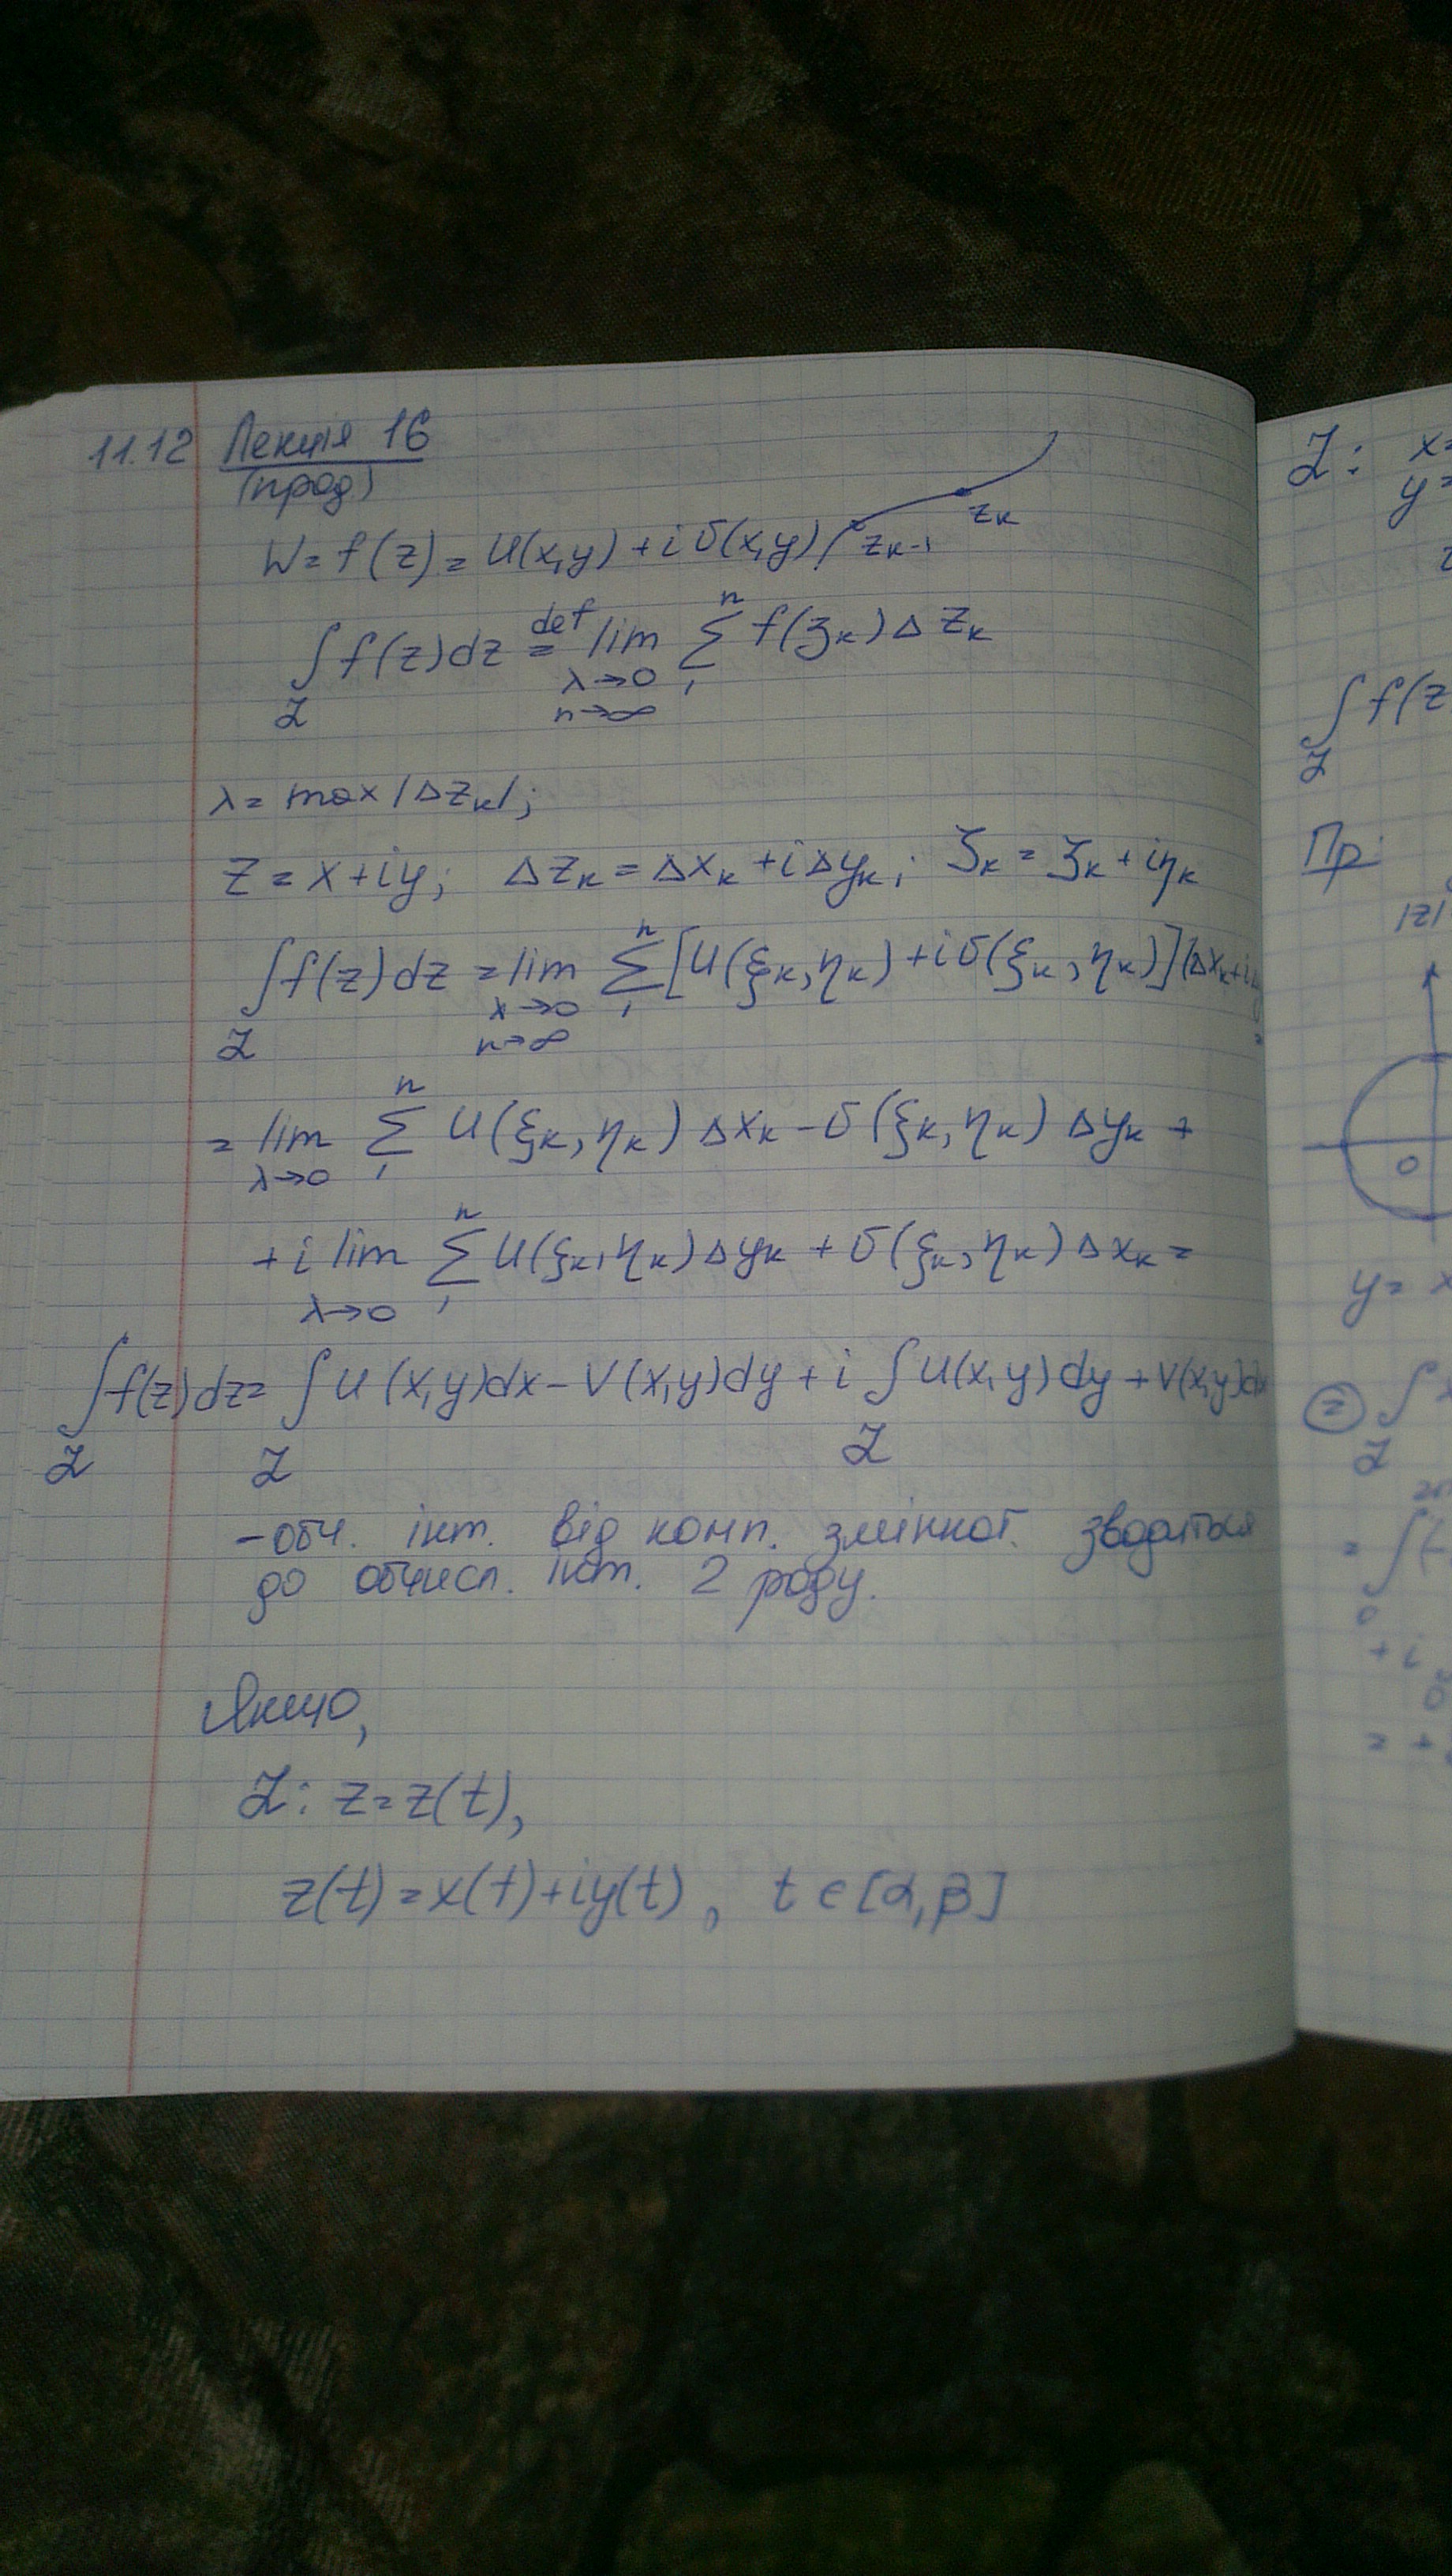 11.12 Лекція 16
(прод)
W = f(z) = U(x,y) + i υ(x,y)
z_k-1 z_k
∫_L f(z)dz =^def lim_{λ→0, n→∞} Σ_1^n f(ʒ_k) Δ z_k
λ = max |Δz_k|;
z = x + iy; Δz_k = Δx_k + iΔy_k; ζ_k = ζ_k + iη_k
∫_L f(z)dz = lim_{λ→0, n→∞} Σ_1^n [U(ξ_k, η_k) + i υ(ξ_k, η_k)](Δx_k + i
= lim_{λ→0} Σ_1^n U(ξ_k, η_k) Δx_k - υ(ξ_k, η_k) Δy_k +
+ i lim_{λ→0} Σ_1^n U(ξ_k, η_k) Δy_k + υ(ξ_k, η_k) Δx_k =
∫_L f(z)dz = ∫_L U(x,y)dx - V(x,y)dy + i ∫_L U(x,y)dy + V(x,y)dx
- обч. інт. від комп. змінної. зводиться
до обчисл. інт. 2 роду.
Якщо,
L: z = z(t),
z(t) = x(t) + iy(t), t ∈ [α, β]
L: x=
y=
∫_L f(z
Пр:
|z|
0
y = x
(=) ∫_L
= ∫_0 (-
+ i
= +